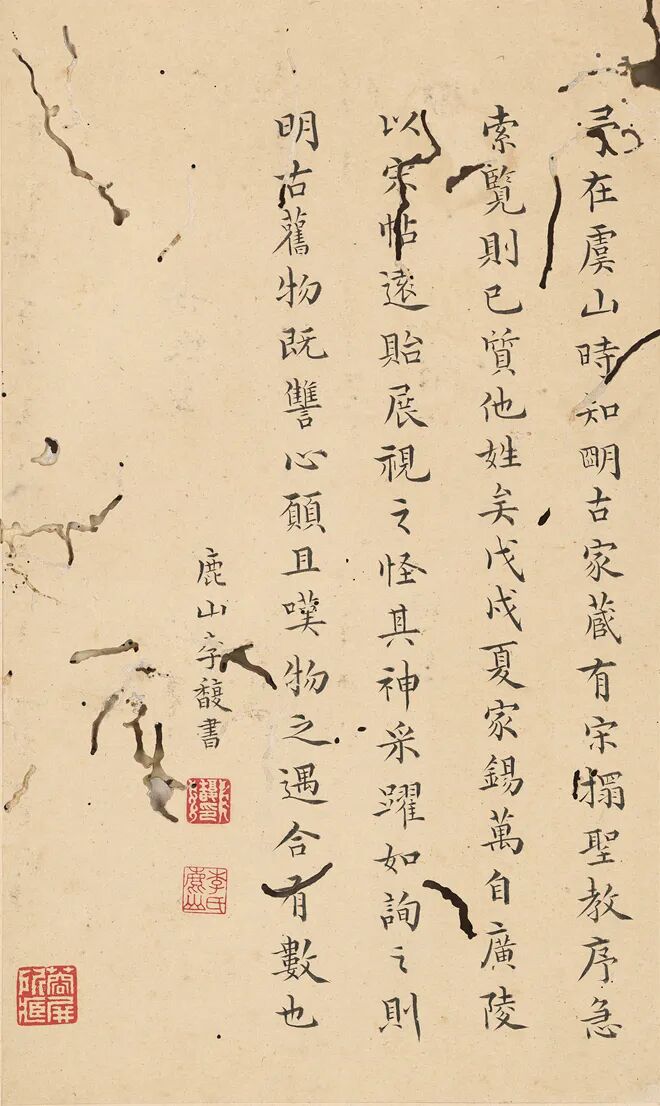 予在虞山時知朙古家藏有宋搨聖教序急
索覽則已質他姓矣戊戌夏家錫萬自廣陵
以宋帖遠貽展視之怪其神采躍如詢之則
明古舊物既讐心願且嘆物之遇合有數也
鹿山李馥書
李氏鹿山